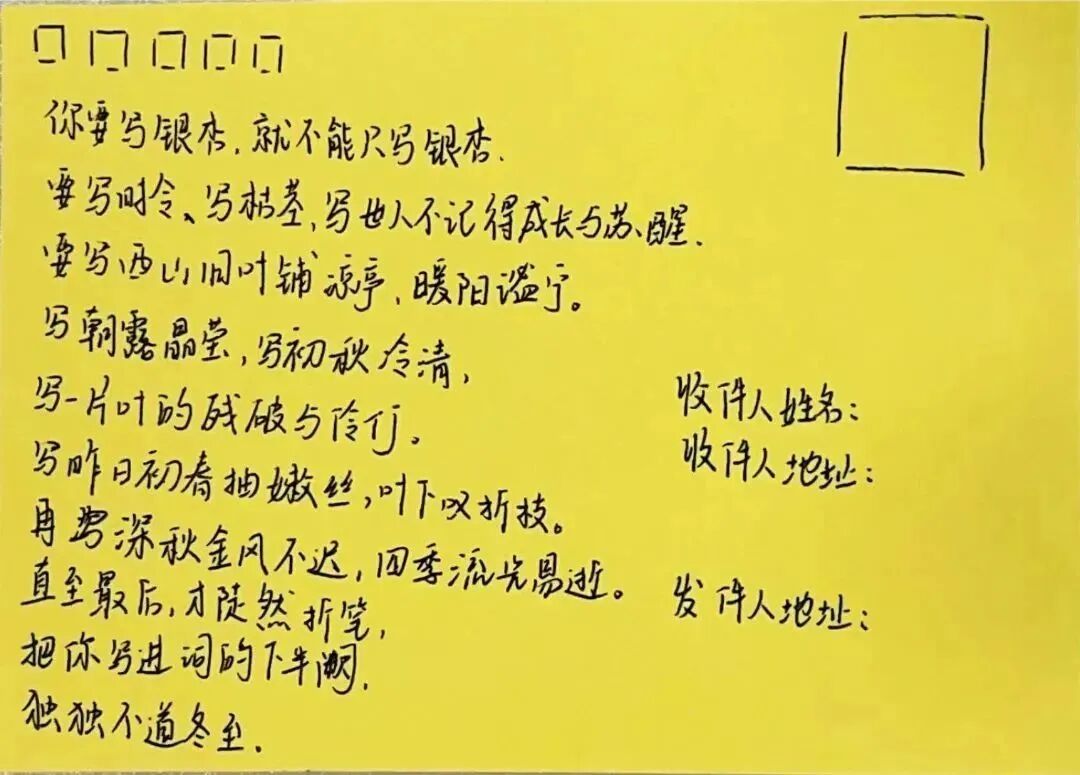 你要写银杏，就不能只写银杏．
要写时令、写枯茎，写世人不记得成长与苏醒．
要写西山旧叶铺凉亭，暖阳谧宁。
写朝露晶莹，写初秋冷清，
写一片叶的残破与伶仃。
写昨日初春抽嫩丝，叶下叹折枝。
再写深秋金风不迟，四季流光易逝。
直至最后，才陡然折笔，
把你写进词的下半阕，
独独不道冬至．
收件人姓名：
收件人地址：
发件人地址：